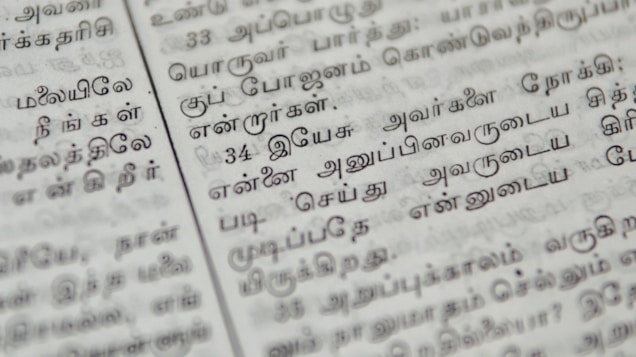 அவனை
ர்க்கதரிசி
மலையிலே
நீங்கள்
ஸ்தலத்திலே
என்கிறீர்
நான்
இந்த மலை
உண்டு
33 அப்பொழுது
யொருவர் பார்த்து: யாரா
குப் போஜனம் கொண்டுவந்திருப்பா
என்றார்கள்.
34 இயேசு அவர்களை நோக்கி:
என்னை அனுப்பினவருடைய சித்த
படி செய்து அவருடைய கிரி
முடிப்பதே என்னுடைய போ
யிருக்கிறது.
35 அறுப்புக்காலம் வருகிற
னும் நாலுமாதம் செல்லும் எ
கிறதில்லையா? இதோ
அறு